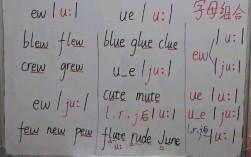 ew / u: /
blew flew
crew grew
ew / ju: /
few new pew
ue / u: /
blue glue clue
u_e / ju: /
cute mute
l.r.j后 / u: /
flute rude June
u:
字母组合
/ u: /
ew
/ ju: /
ue / u: /
u_e / ju: /
l.r.j后 / u: /